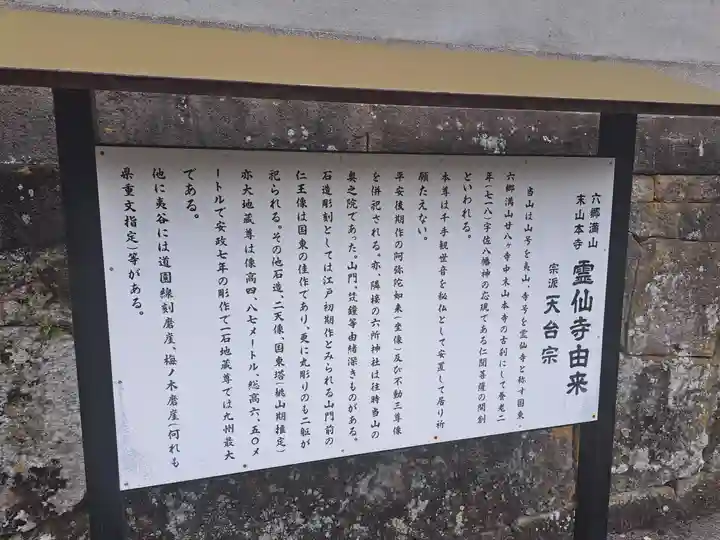 六郷満山
末山本寺
霊仙寺由来
宗派 天台宗
当山は山号を夷山、寺号を霊仙寺と称す国東
六郷満山廿八ヶ寺中末山本寺の古刹にして養老二
年(七一八)宇佐八幡神の応現である仁聞菩薩の開創
といわれる。
本尊は千手観世音を秘仏として安置して居り祈
願たえない。
平安後期作の阿弥陀如来(坐像)及び不動三尊像
を併祀される。亦、隣接の六所神社は往時当山の
奥之院であった。山門、梵鐘等由緒深きものがある。
石造彫刻としては江戸初期作とみられる山門前の
仁王像は国東の佳作であり、更に丸彫りのも二躯が
祀られる。その他石造、二天像、国東塔(桃山期推定)
亦大地蔵尊は像高四、八七メートル・総高六、五〇メ
ートルで安政七年の彫作で一石地蔵尊では九州最大
である。
他に夷谷には道園線刻磨崖、梅ノ木磨崖(何れも
県重文指定)等がある。